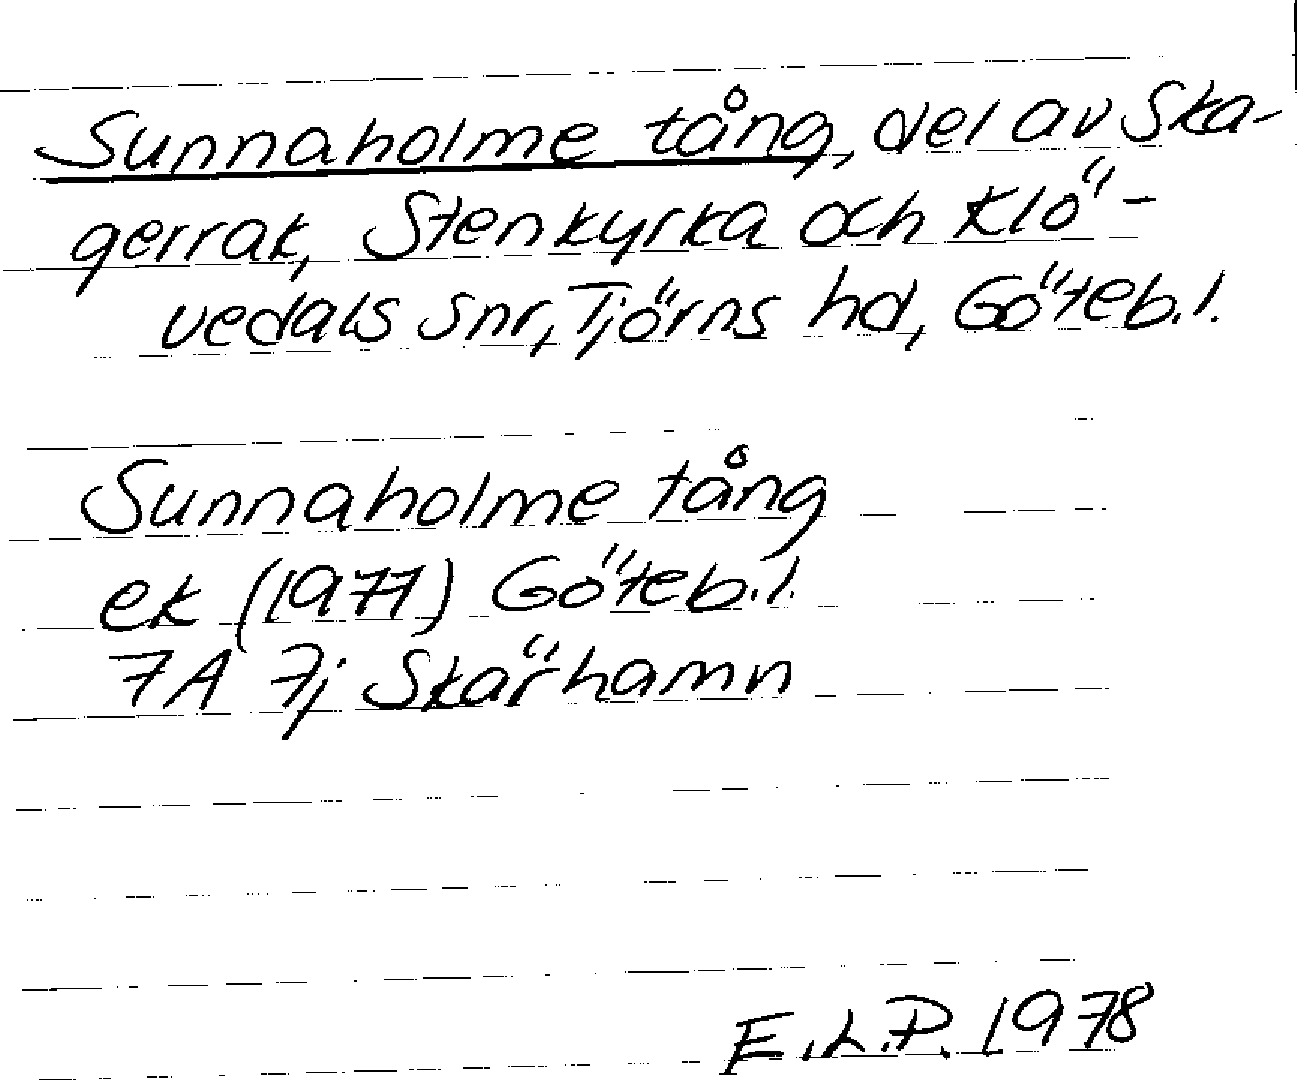 Sunnaholme tång, del av Ska-
gerrak, Stenkyrka och Klö-
vedals snr, Tjörns hd, Göteb.l.
Sunnaholme tång
ek (1977) Göteb.l.
7A 7j Skärhamn
E.L.P. 1978